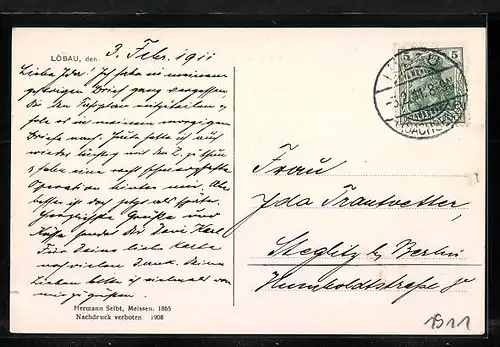 LÖBAU, den 3. Febr. 1911
Liebe Ida! Ich habe in meinem
gestrigen Brief ganz vergessen
Dir den Fahrplan mitzuteilen u.
hole es in meinem morgigen
Briefe nach. Heute hatte ich auch
wieder tüchtig mit der Z. zu thun
u. habe eine recht schmerzhafte
Operation hinter mir. Aber
besser ist doch jetzt als später.
Herzlichste Grüße und
Küsse sendet Dir Dein Karl
Für Deine liebe Karte
noch vielen Dank. Deine
Lieben bitte ich vielmals von
mir zu grüßen.
Hermann Seibt, Meissen. 1865
Nachdruck verboten. 1908
5
LÖBAU
3.2.11. 8-9
(SACHSEN)
Frau
Ida Trautvetter,
Steglitz b. Berlin
Humboldtstraße
1911